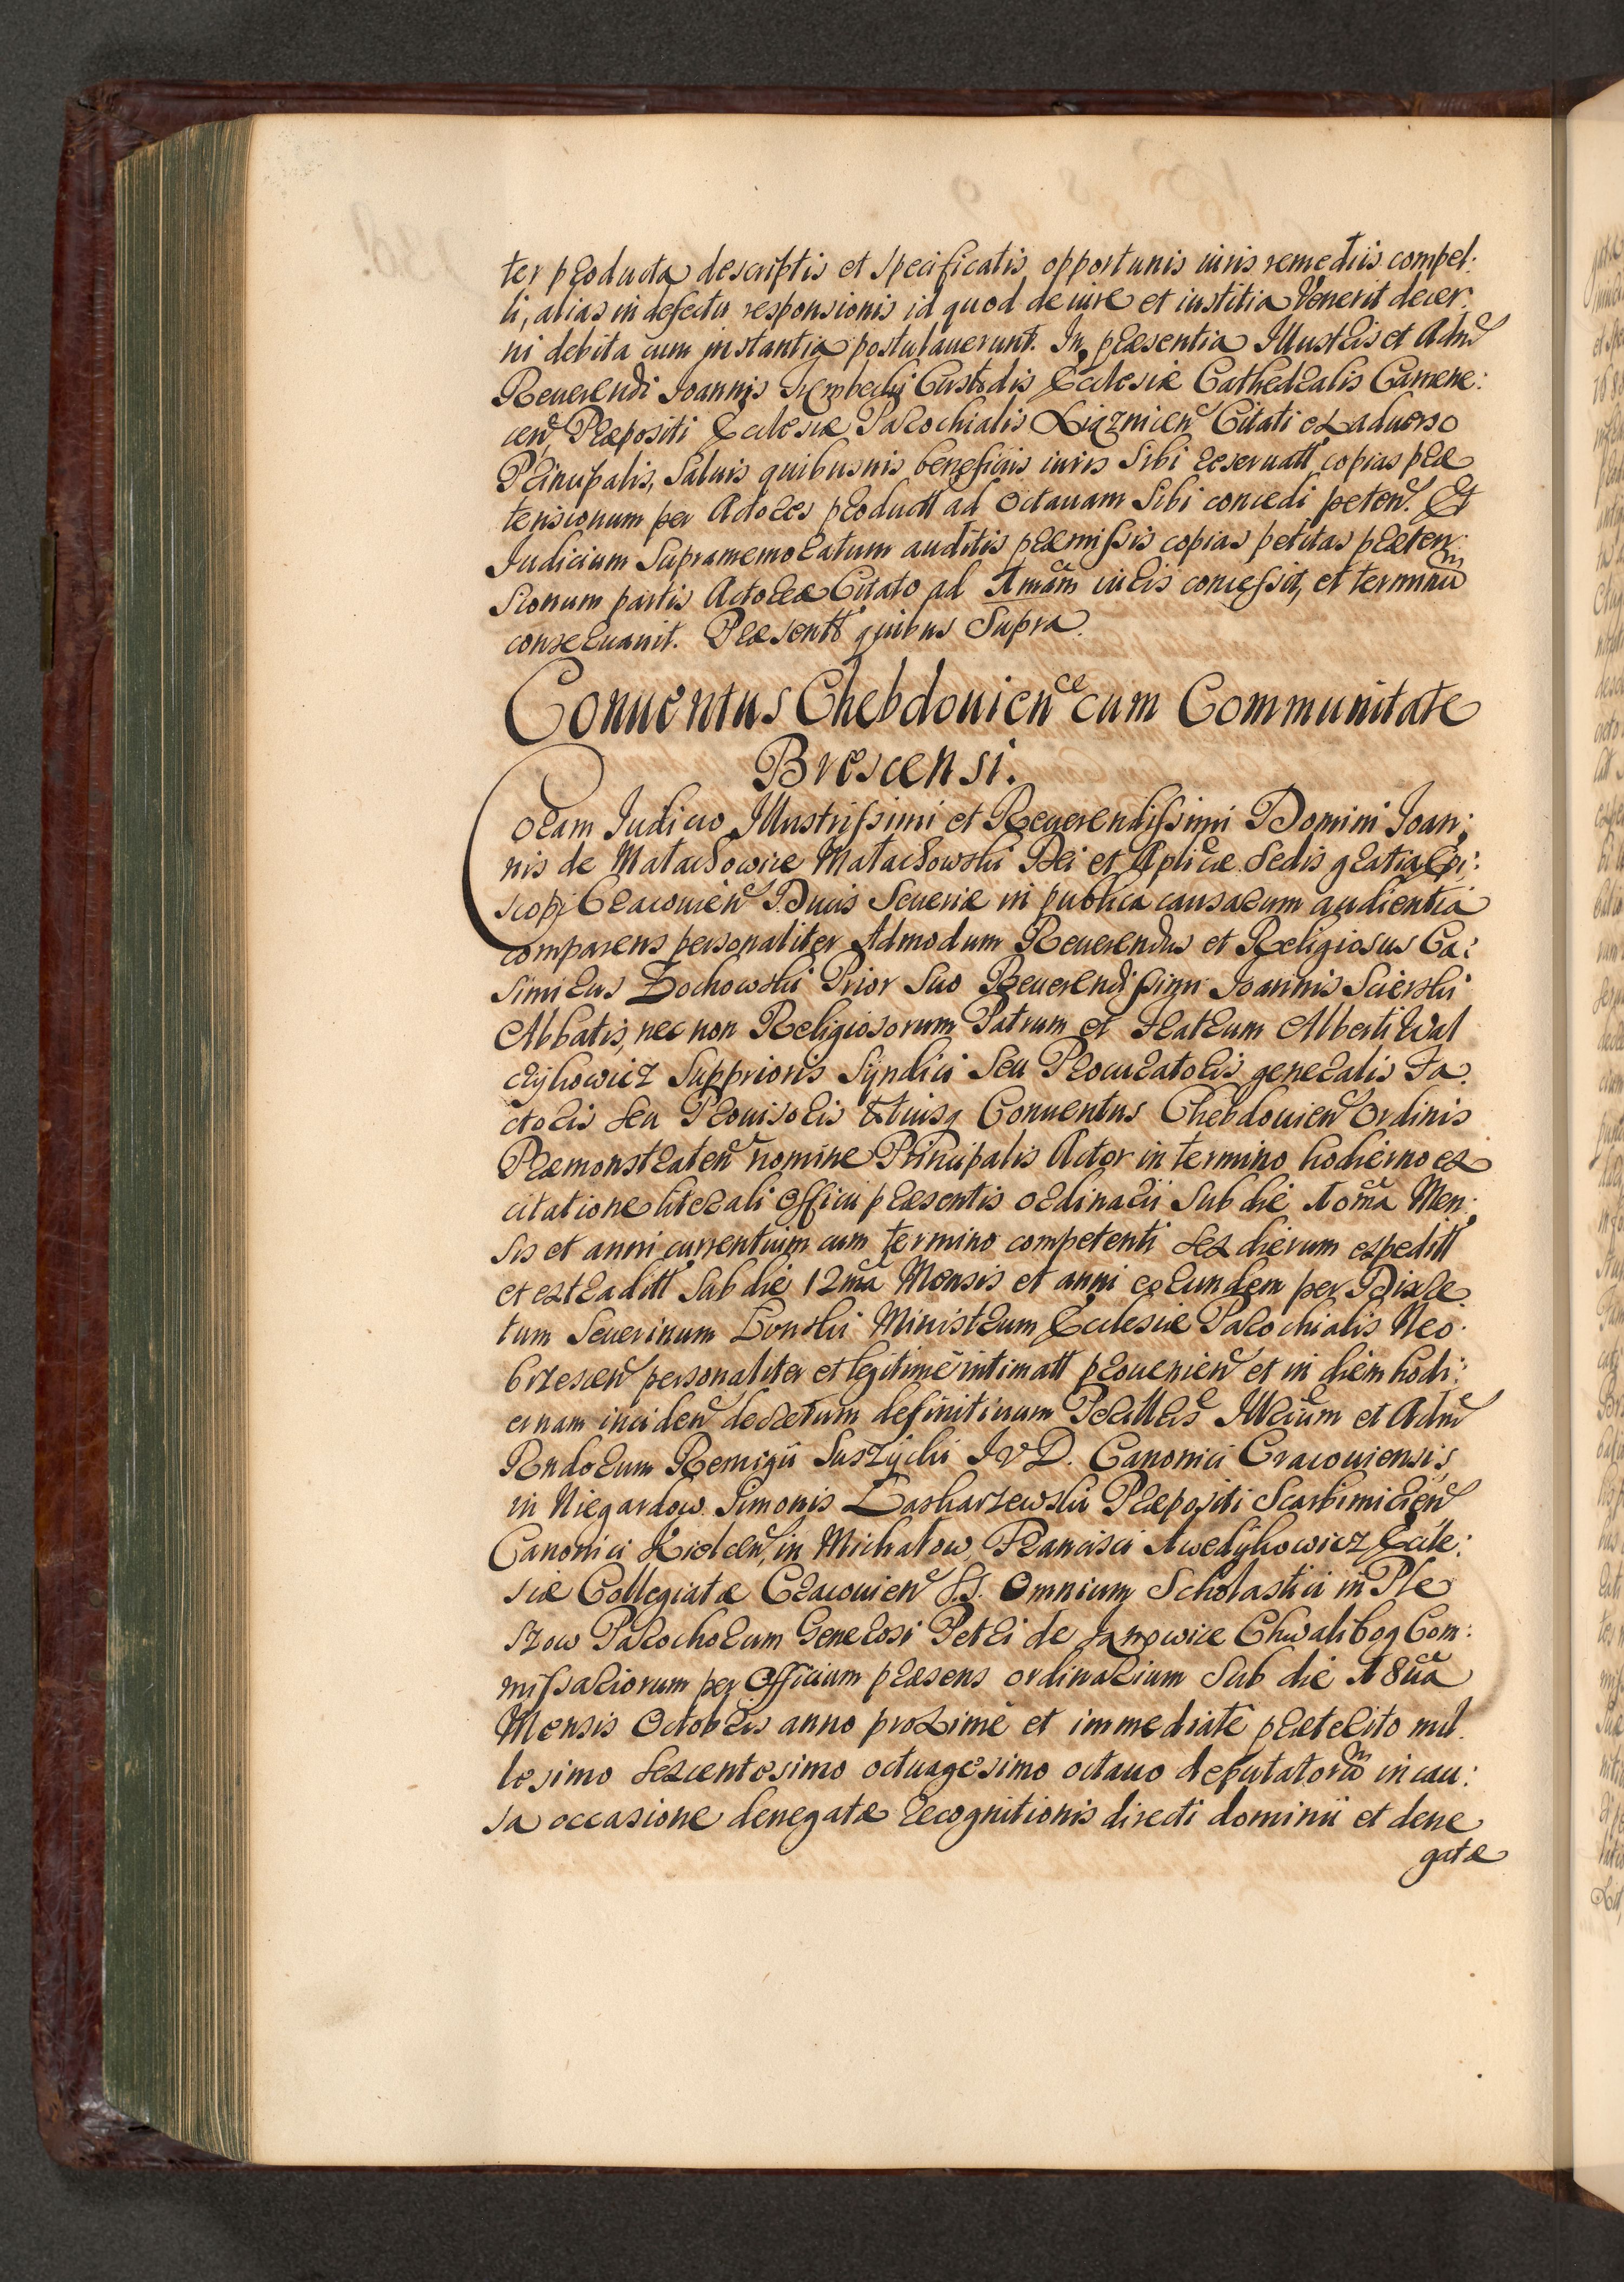 ter producta descriptis et specificatis opportunis iuris remediis compel:
li, alias in defectu responsionis id quod de iure et iustitia venerit decer
ni debita cum instantia postulauerunt. In præsentia Illustris et Adm̃
Reuerendi Joannis Custodis Ecclesiæ Cathedralis Camene:
cen̄ Præpositi Ecclesiæ Parochialis Citati ex aduerso
Principalis, Saluis quibusuis beneficiis iuris Sibi reseruatt copias præ
tensionum per Actores productt ad Octauam Sibi concedi peten̄. Et
Judicium Supramemoratum auditis præmissis copias petitas præten
sionum partis Actoreæ Citato ad 1mãm iuris concessit, et terminũm
conseruauit. Præsentt quibus Supra.
Conuentus Chebdouien̄ cum Communitate
Brescensi.
Coram Judicio Illustrissimi et Reuerendissimi Domini Joan:
nis de Małachowice Małachowski Dei et Aplicæ Sedis gratia Epi:
scopi Cracouien̄ Ducis Seueriæ in publica causarum audientia
comparens personaliter Admodum Reuerendus et Religiosus Ca:
simirus Prior Suo Reuerendissimi Joannis Scierski
Abbatis, nec non Religiosorum Patrum et Fratrum Alberti Wal
czykowicz Supprioris Syndici Seu Procuratoris generalis Fa
ctoris Seu Prouisoris totiusq Conuentus Chebdouien̄ Ordinis
Præmonstraten̄ nomine Principalis Actor in termino hodierno ex
citatione literali Officii præsentis ordinarii Sub die 10mã Men:
sis et anni currentium cum termino competenti Sex dierum expeditt
et extraditt Sub die 12mã Mensis et anni eorundem per Discre
tum Seuerinum Ministrum Ecclesiæ Parochialis Neo
brzescen̄ personaliter et legitimè intimatt prouenien̄ et in diem hodi:
ernam inciden̄ decretum definitiuum Perillris Illrium et Adm̃
Rndorum Remigii Suszycki J V D. Canonici Cracouiensis,
in Niegardow Simonis Præpositi Scarbimirien̄
Canonici Kielcen̄, in Michałow, Francisci Eccle:
siæ Collegiatæ Cracouien̄ S.S. Omnium Scholastici in Ple
szow Parochorum Generosi Petri de Janowice Chwalibog Com:
missariorum per Officium præsens ordinarium Sub die 18uã
Mensis Octobris anno proximè et immediatè præterito mil
lesimo Sexcentesimo octuagesimo octauo deputatorũm in cau:
sa occasione denegatæ recognitionis directi dominii et dene
gatæ